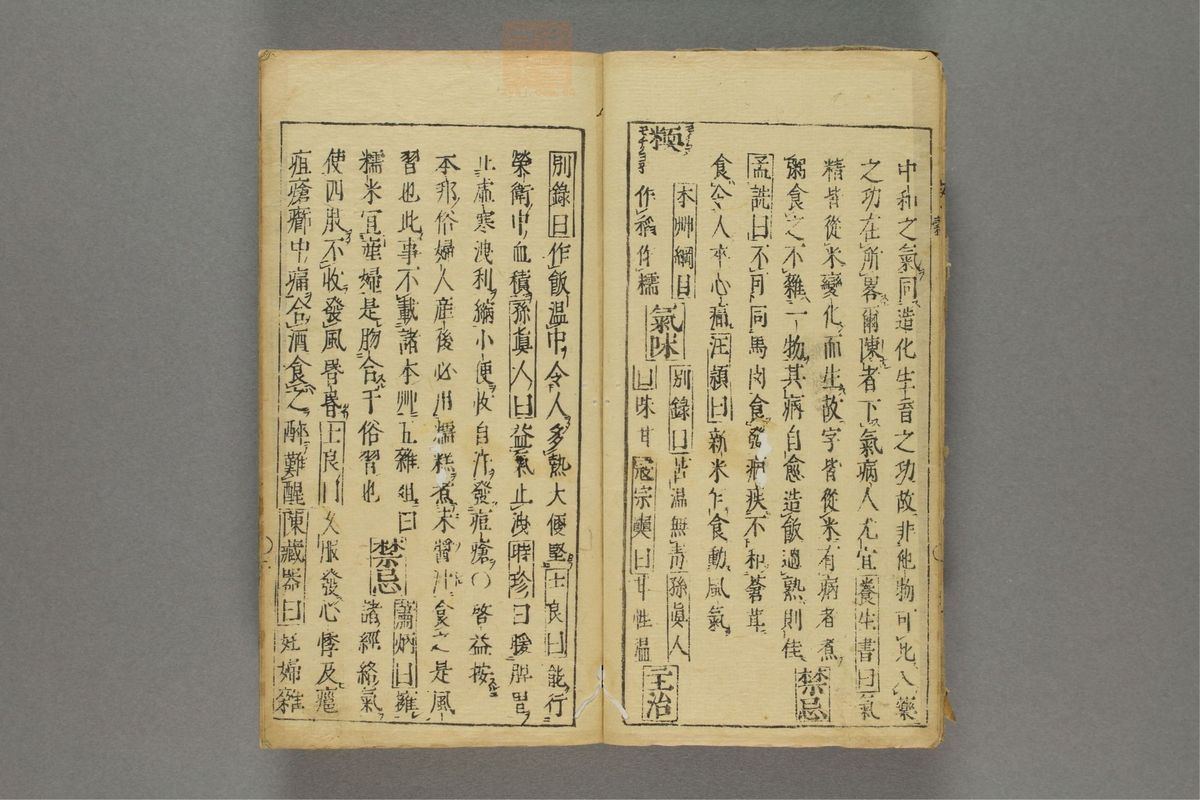 中和之氣同造化生育之功故非他物可比入藥
之功在所畧爾陳者下氣病人尤宜養生書曰氣
精皆從米變化而生故字皆從米有病者煮
粥食之不雜一物其病自愈造飯過熟則佳 禁忌
孟詵曰不可同馬肉食發痼疾不和蒼耳
食令人卒心痛汪頴曰新米乍食動風氣
糯 本艸綱目 氣味 別錄曰苦温無毒孫真人 主治
作稬作糥 曰味甘寇宗奭曰甘性温
別錄曰作飯温中令人多熱大便堅士良曰能行
榮衛中血積孫真人曰益氣止洩時珍曰暖脾胃
止虛寒洩利縮小便收自汗發痘瘡〇啓益按
本邦俗婦人産後必用糯糕煮未醬汁食之是風
習也此事不載諸本艸五雜俎曰
糯米宜産婦是胞合于俗習也 禁忌 蕭炳曰雍
諸經絡氣
使四肢不收發風昏昏士良曰久服發心悸及癰
疽瘡癤中痛合酒食之醉難醒陳藏器曰妊婦雜